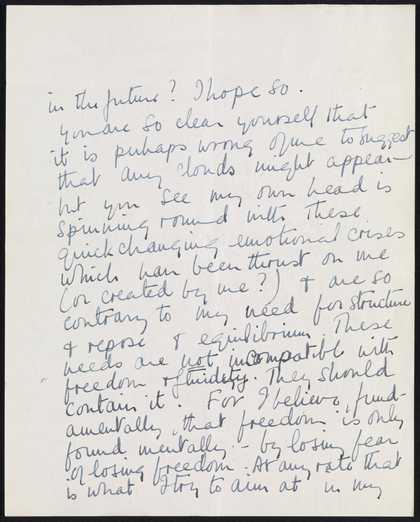 in the future? I hope so.
You are so clear yourself that
it is perhaps wrong of me to suggest
that any clouds might appear—
but you see my own head is
spinning round with these
quick changing emotional crises
which have been thrust on me
(or created by me?) & are so
contrary to my need for structure
& repose & equilibrium. These
needs are not incompatible with
freedom & fluidity. They should
contain it. For I believe, fund-
amentally, that freedom is only
found mentally – by losing fear
of losing freedom. At any rate that
is what I try to aim at in my